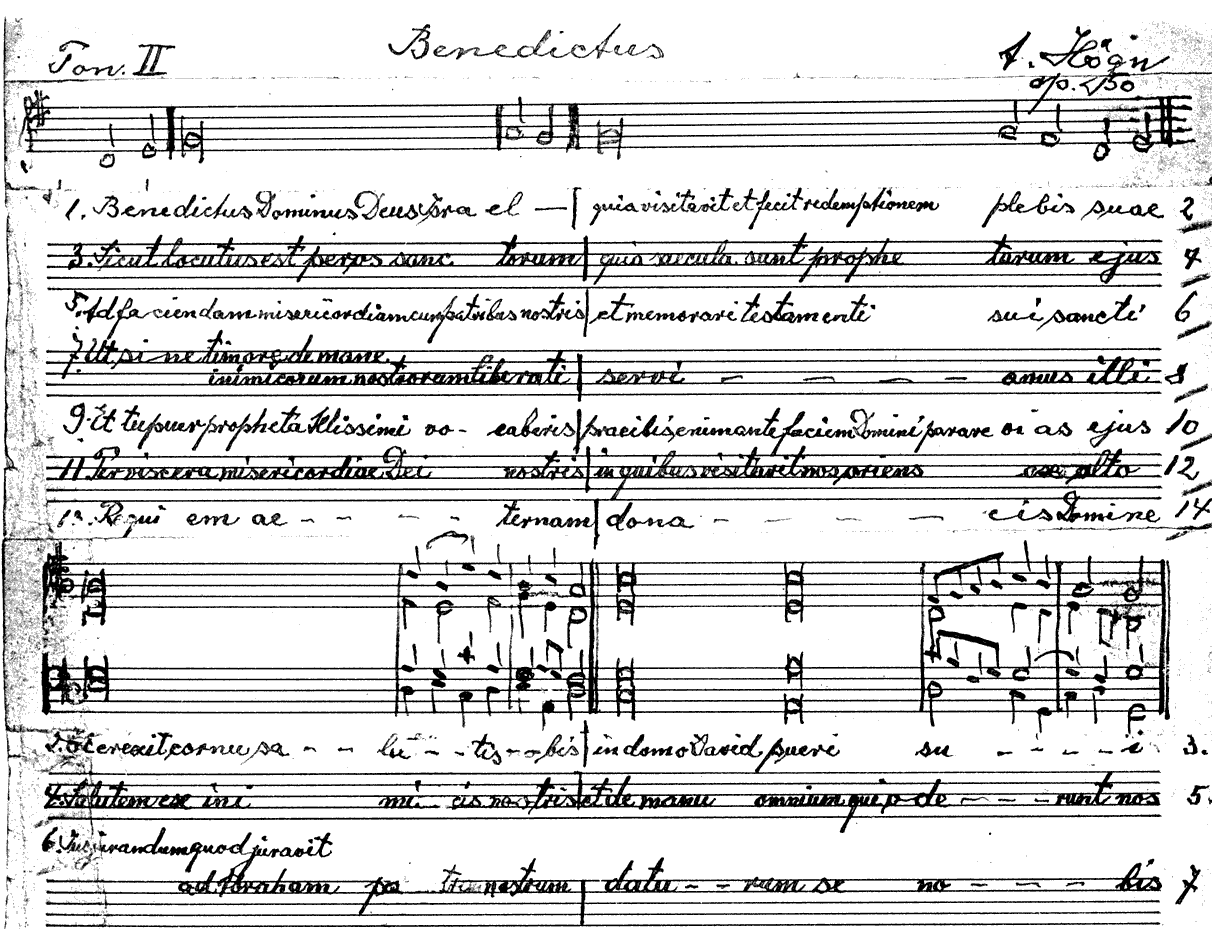 Benedictus
Ton. II
A. Högn
op. 50
1. Benedictus Dominus Deus Isra el — quia visitavit et fecit redemptionem plebis suae 2
3. Sicut locutus est per os sanc torum quia saecula sunt prophe tarum ejus 4
5. Ad fa ciendam misericordiam cum patribus nostris et memorari testamenti sui sancti 6
7. Ut si ne timore de mane
inimicorum nostrorum liberati servi — — — — amus illi 8
9. Et tu puer propheta Altissimi vo- caberis praeibis enim ante faciem Domini parare vi as ejus 10
11. Per viscera misericordiae Dei nostris in quibus visitavit nos oriens ex alto 12
13. Requi em ae - - - - ternam dona - - - - eis Domine 14
2. et erexit cornu sa - - lu - - tis - obis in domo David pueri su - - - - i 3.
4. Salutem ex ini mi - cis nostris et de manu omnium qui o de - - - runt nos 5.
6. Jusjurandum quod juravit
ad Abraham pa trem nostrum datu - - rum se no - - - bis 7